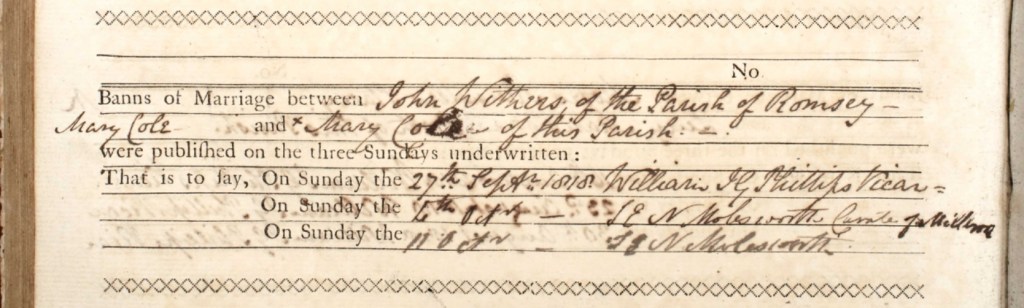 No
Banns of Marriage between John Withers, of the Parish of Romsey —
Mary Cole and × Mary Cole of this Parish. —
were publiſhed on the three Sundays underwritten:
That is to ſay, On Sunday the 27th Septr. 1818 William Phillips Vicar =
On Sunday the 4th Octr — N Molesworth Curate of
On Sunday the 11 Octr — N Molesworth